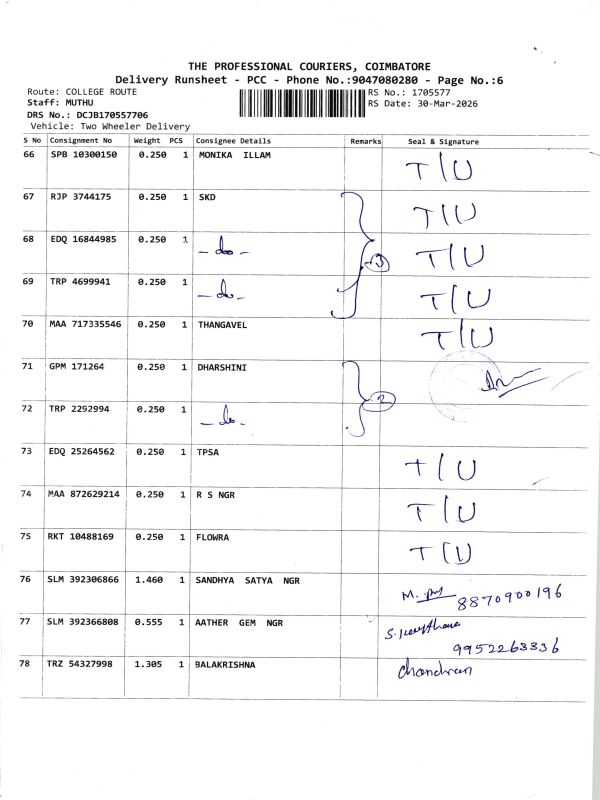 THE PROFESSIONAL COURIERS, COIMBATORE
Delivery Runsheet - PCC - Phone No.:9047080280 - Page No.:6
Route: COLLEGE ROUTE RS No.: 1705577
Staff: MUTHU RS Date: 30-Mar-2026
DRS No.: DCJB170557706
Vehicle: Two Wheeler Delivery
S No Consignment No Weight PCS Consignee Details Remarks Seal & Signature
66 SPB 10300150 0.250 1 MONIKA ILLAM T/U
67 RJP 3744175 0.250 1 SKD T/U
68 EDQ 16844985 0.250 1 - do - 3 T/U
69 TRP 4699941 0.250 1 - do - T/U
70 MAA 717335546 0.250 1 THANGAVEL T/U
71 GPM 171264 0.250 1 DHARSHINI
72 TRP 2292994 0.250 1 - do - 2
73 EDQ 25264562 0.250 1 TPSA T/U
74 MAA 872629214 0.250 1 R S NGR T/U
75 RKT 10488169 0.250 1 FLOWRA T/U
76 SLM 392306866 1.460 1 SANDHYA SATYA NGR M. 8870900196
77 SLM 392366808 0.555 1 AATHER GEM NGR S. 9952263336
78 TRZ 54327998 1.305 1 BALAKRISHNA Chandran